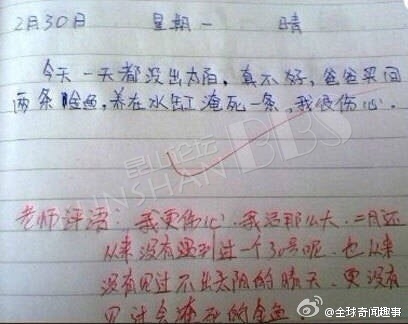 2月30日 星期一 晴
今天一天都没出太阳,真不好,爸爸买回
两条金鱼,养在水缸淹死一条,我很伤心。
昆山论坛
KUNSHAN BBS
老师评语:我更伤心.我活那么大,二月还
从来没有遇到过一个30号呢,也从来
没有见过不出太阳的晴天,更没有
见过会淹死的金鱼.
@全球奇闻趣事